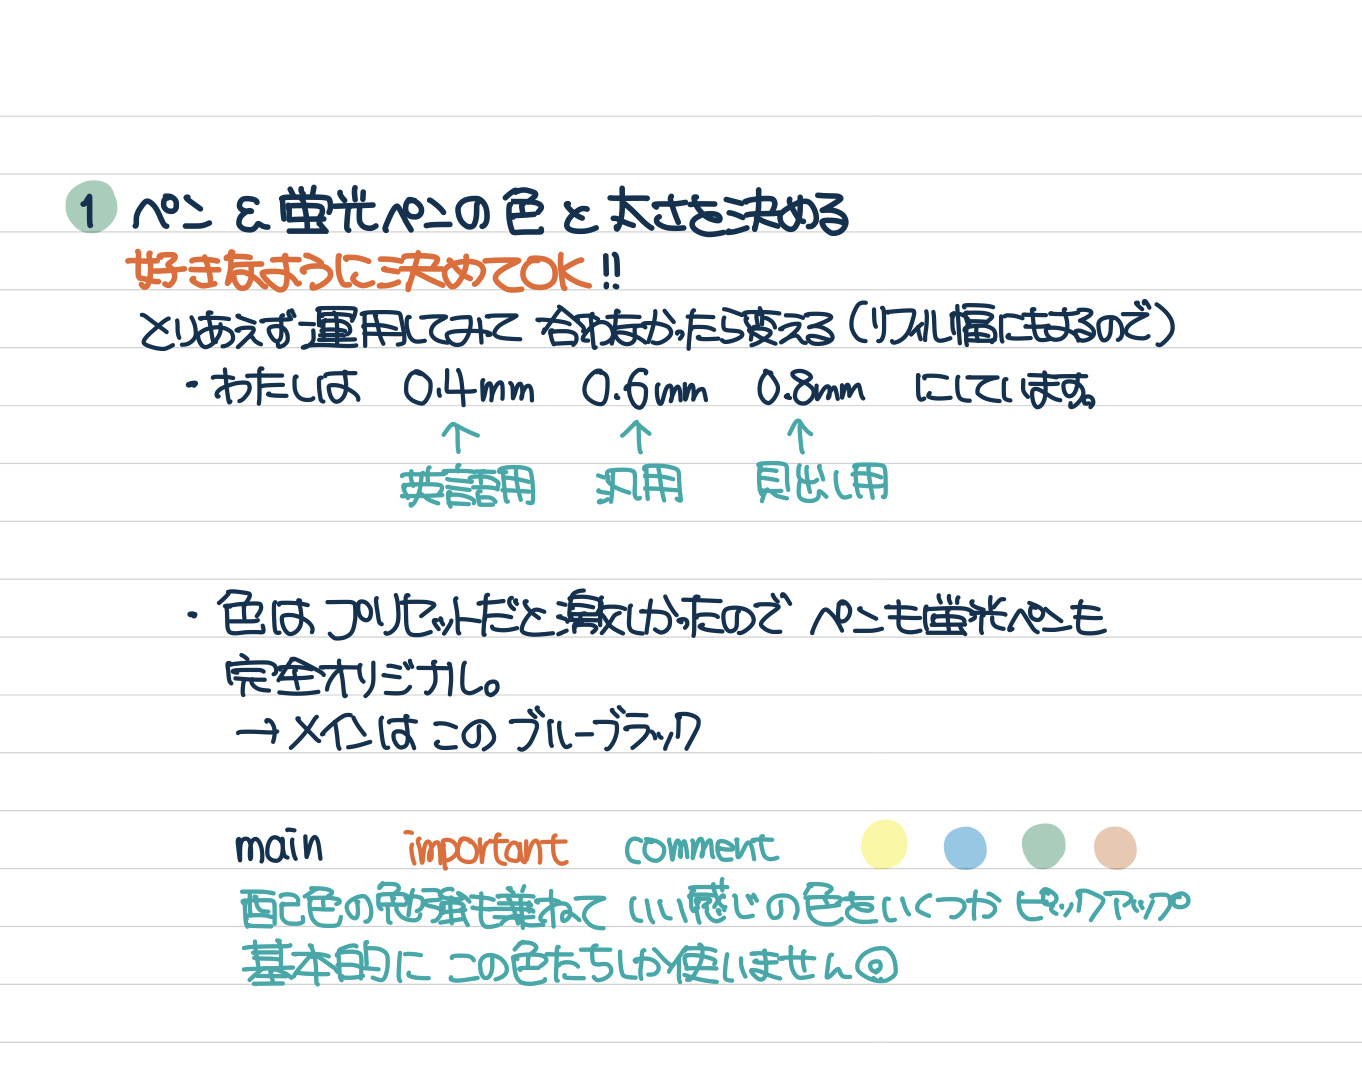 1 ペン & 蛍光ペンの色と太さを決める
好きなように決めてOK!!
とりあえず運用してみて 合わなかったら変える(リフィル幅にもよるので)
・わたしは 0.4mm 0.6mm 0.8mm にしています。
↑ ↑ ↑
英語用 汎用 見出し用
・色はプリセットだと激しかったので ペンも蛍光ペンも
完全オリジナル。
→メインはこのブルーブラック
main important comment
配色の勉強も兼ねて いい感じの色をいくつかピックアップ
基本的に この色たちしか使いません◎